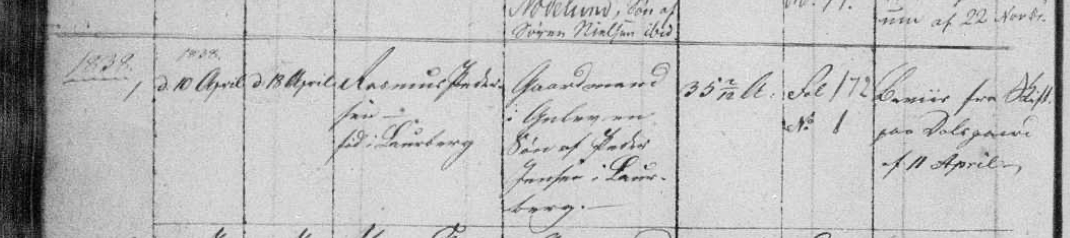 Nödelund, Søn af
Søren Nielsen ibid
af 22 Novbr.
1838.
1838.
1
d. 10 April
d. 18 April
Rasmus Peder-
sen -
fød i Laurberg
Gaardmand
i
Søn af Peder
Jensen i Laur-
berg. -
35 2/12 A.
Fol 172
No 1
Beviis fra Skift.
paa
af 11 April